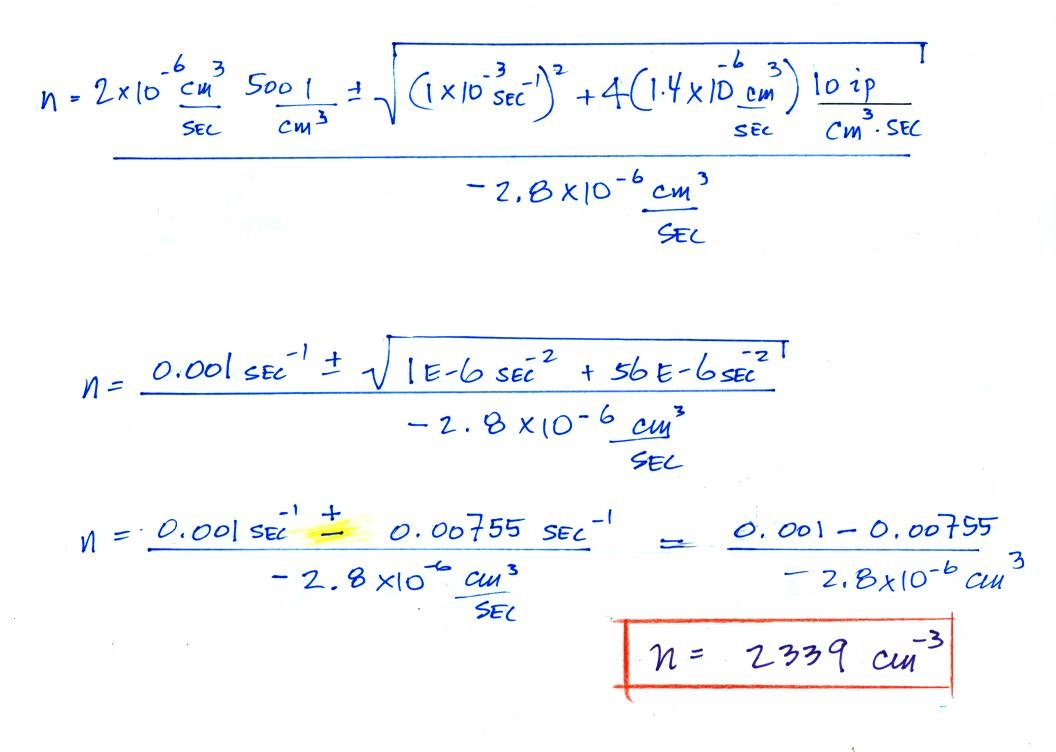 n = 2×10⁻⁶ cm³/SEC 500 1/cm³ ± √((1×10⁻³ SEC⁻¹)² + 4(1.4×10⁻⁶ cm³/SEC) 10 ip/cm³·SEC)
−2.8×10⁻⁶ cm³/SEC
n = 0.001 SEC⁻¹ ± √(1E-6 SEC⁻² + 56E-6 SEC⁻²)
−2.8×10⁻⁶ cm³/SEC
n = 0.001 SEC⁻¹ ± 0.00755 SEC⁻¹ = 0.001 − 0.00755
−2.8×10⁻⁶ cm³/SEC −2.8×10⁻⁶ cm³
n = 2339 cm⁻³